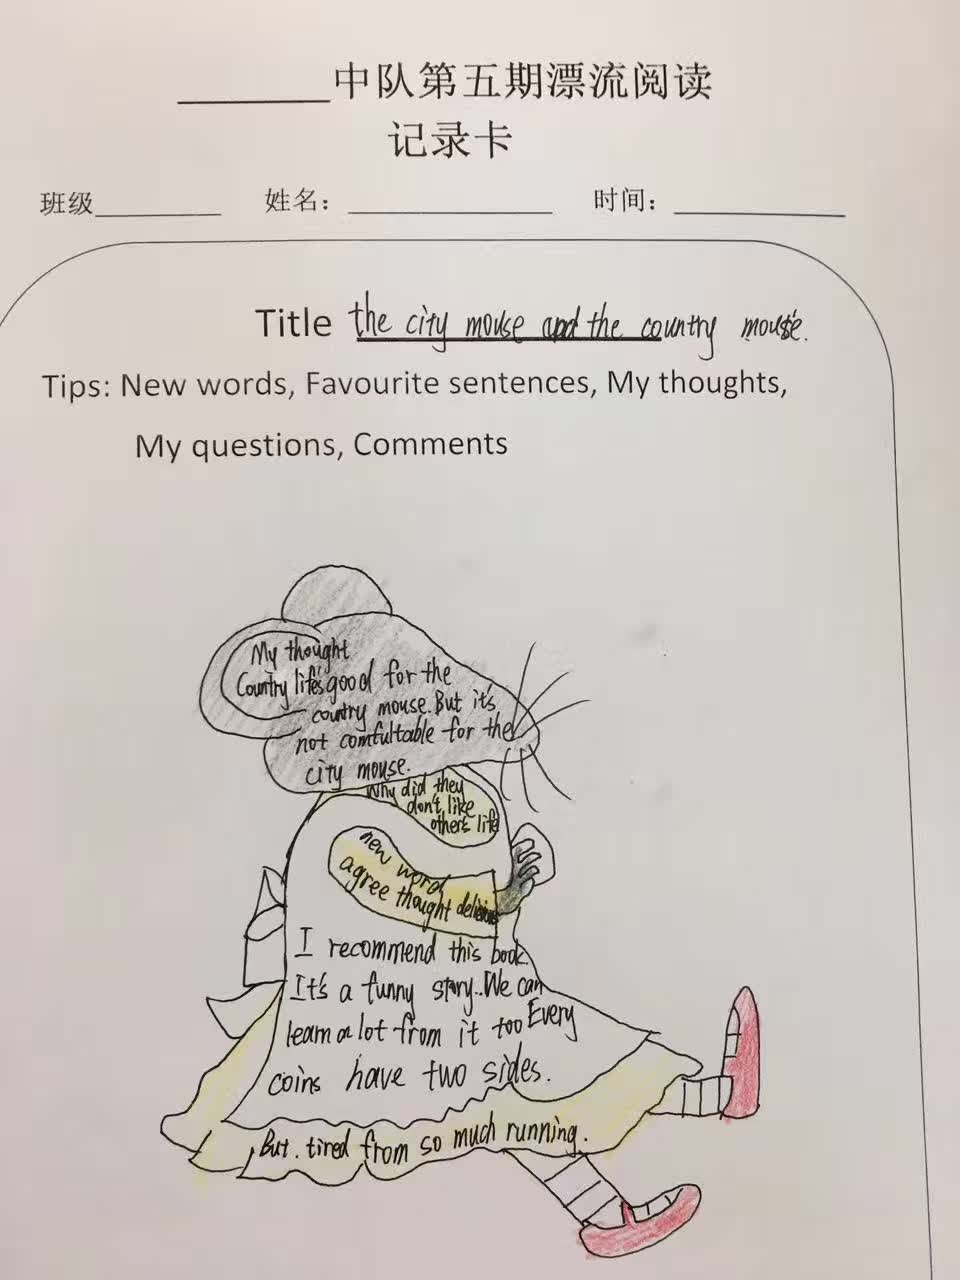 ______中队第五期漂流阅读
记录卡
班级________ 姓名：____________ 时间：__________
Title the city mouse and the country mouse.
Tips: New words, Favourite sentences, My thoughts,
My questions, Comments
My thought
Country life's good for the
country mouse. But it's
not comfultable for the
city mouse.
Why did they
don't like
other's life
new word
agree thought delicious
I recommend this book.
It's a funny story. We can
learn a lot from it too Every
coins have two sides.
But. tired from so much running.